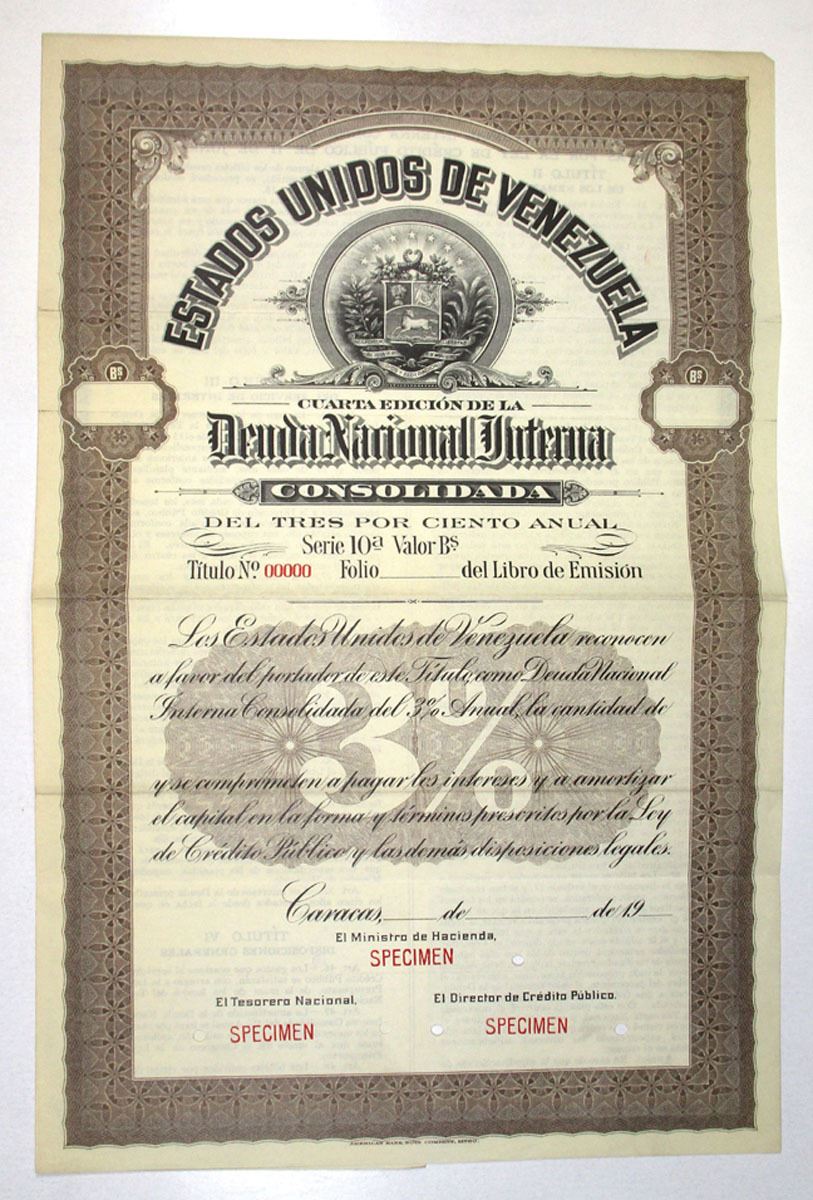 ESTADOS UNIDOS DE VENEZUELA
Bs
Bs
CUARTA EDICIÓN DE LA
Deuda Nacional Interna
CONSOLIDADA
DEL TRES POR CIENTO ANUAL
Serie 10ª Valor Bs
Título Nº 00000 Folio________del Libro de Emisión
3%
Los Estados Unidos de Venezuela reconocen
a favor del portador de este Título, como Deuda Nacional
Interna Consolidada del 3% Anual, la cantidad de
y se comprometen a pagar los intereses y a amortizar
el capital en la forma y términos prescritos por la Ley
de Crédito Público y las demás disposiciones legales.
Caracas,_____de___________de 19___
El Ministro de Hacienda,
SPECIMEN
El Tesorero Nacional,
El Director de Crédito Público.
SPECIMEN
SPECIMEN
AMERICAN BANK NOTE COMPANY,